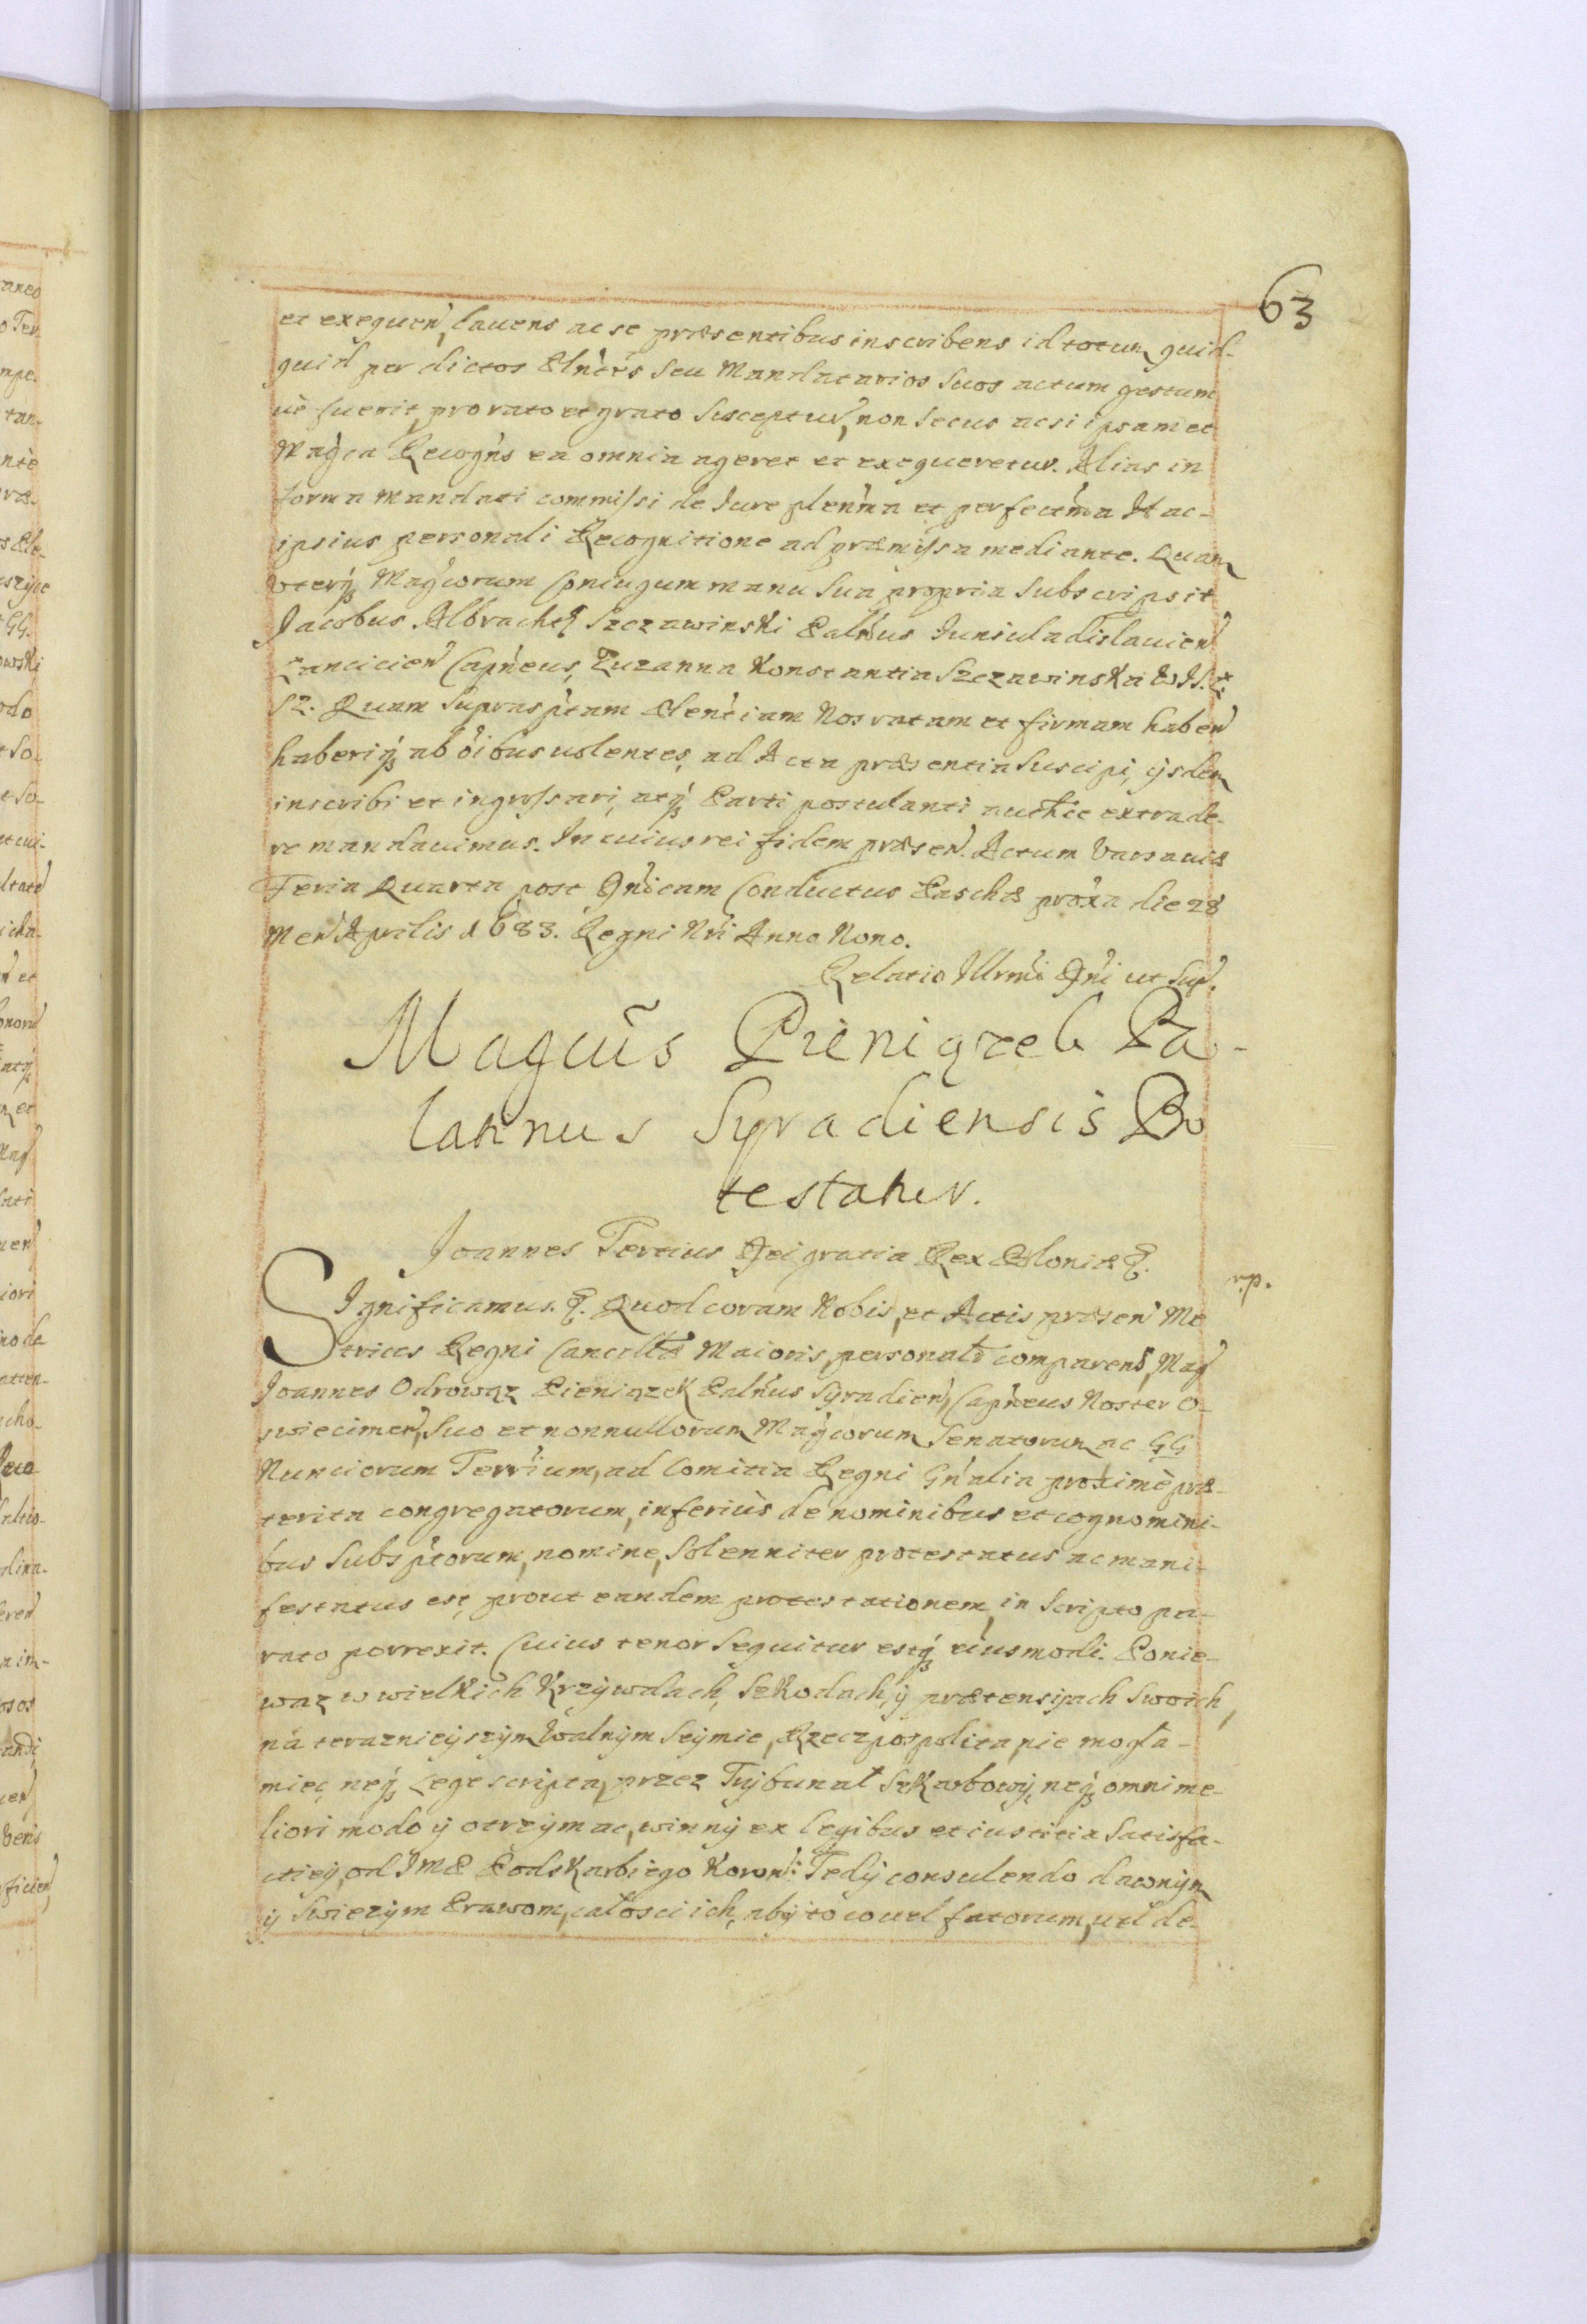 63
et exequen, cavens ac se præsentibus inscribens id totum quid-
quid per dictos Plnt̃es seu Mandatarios suos actum gestum
ue fuerit, pro rato et grato susceptur, non secus ac si ipsamet
Mag̃ca Recogñs ea omnia ageret et exequeretur. Alias in
forma mandati commissi de Iure pleñma et perfect̃ma Hac-
ipsius personali Recognitione ad præmissa mediante. Quam
uterq3 Mag̃corum Coniugum manu sua propria subscripsit
Jacobus Albracht Szczawinski Palñus Iuniuladislauien
Lancicien Capñeus, Zuzanna Konstantia Szczawinska W. I. Ł.
Sz. Quam supraspt̃am Plent̃iam Nos ratam et firmam haben
haberiq3 ab õibus uolentes, ad Acta præsentia suscipi, ijsdem
inscribi et ingrossari, atq3 Parti postulanti auth̃ce extrade-
re mandauimus. In cuius rei fidem præsen. Actum Varsauiæ
Feria Quarta post Dñicam Conductus Paschæ prox̃a die 28
Men Aprilis 1683. Regni Nr̃i Anno Nono.
Relatio Illrm̃i Dñi ut sup.
Magcũs Pieniązek Pa-
latinus Syradiensis Pro
testatur.
Joannes Tertius Dei gratia Rex Poloniæ &.
rp.
SIgnificamus. &. Quod coram Nobis, et Actis præsen Me
trices Regni Cancellæ Maioris, personalr̃ comparens, Mag
Joannes Odrowąz Pieniązek Palñus Syradien, Capñeus Noster O-
swiecimen, suo et nonnullorum Mag̃corum Senatorum ac GG
Nunciorum Terr̃ium, ad Comitia Regni Gñalia proximè præ-
terita congregatorum, inferiùs de nominibus et cognomini-
bus subspt̃orum, nomine, solenniter protestatus ac mani-
festatus est, prout eandem protestationem, in scripto pa-
rato porrexit. Cuius tenor sequitur estq3 eiusmodi. Ponie-
waz w wielkich Krzywdach, Szkodach, y prætensyach swoich,
ná teraznieyszym Walnym Seymie, Rzeczpospolita, nie mogła-
miec neq3 Lege scripta, przez Trybunał Skarbowy, neq3 omni me-
liori modo y otrzymac, winny ex legibus et iustitia satisfa-
ctiey, od JMP Podskarbiego Koron: Tedy consulendo dawnym
y swiezym Prawom, całosci ich, aby to co uel fatorum, uel de-